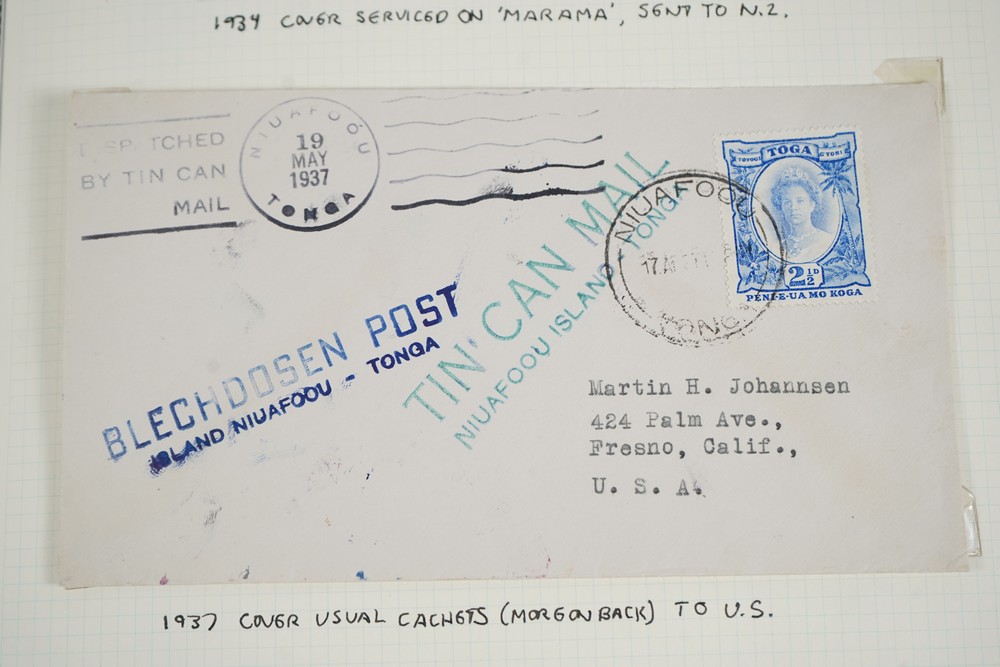 1934 COVER SERVICED ON 'MARAMA', SENT TO N.Z.
DISPATCHED
BY TIN CAN
MAIL
NIUAFOOU
19
MAY
1937
TONGA
TIN CAN MAIL
NIUAFOOU ISLAND - TONGA
BLECHDOSEN POST
ISLAND NIUAFOOU - TONGA
NIUAFOOU
17.
TONGA
TOGA
2½D
PENI-E-UA MO KOGA
Martin H. Johannsen
424 Palm Ave.,
Fresno, Calif.,
U. S. A.
1937 COVER USUAL CACHETS (MORE ON BACK) TO U.S.